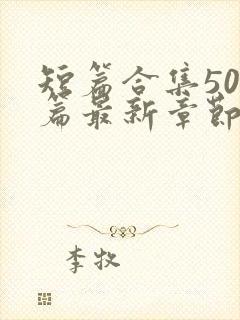 短篇合集50
篇最新章節
李牧